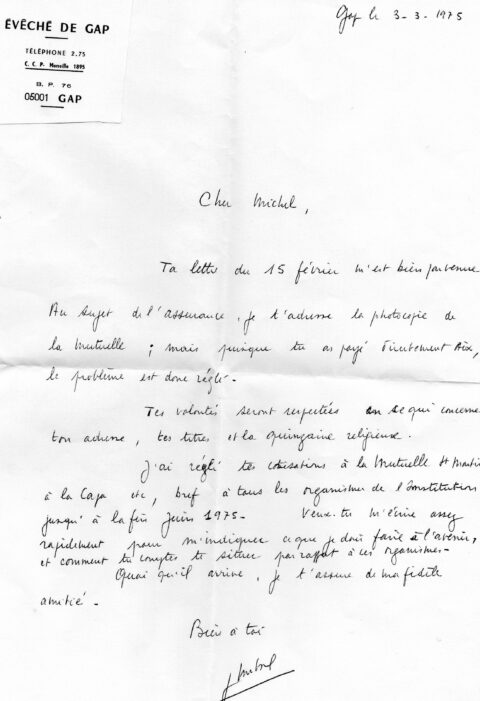 ÉVÊCHÉ DE GAP
TÉLÉPHONE 2.75
C. C. P. Marseille 1895
B. P. 76
05001 GAP
Gap le 3-3-1975
Cher Michel,
Ta lettre du 15 février m'est bien parvenue
Au sujet de l'assurance, je t'adresse la photocopie de
la Mutuelle ; mais puisque tu as payé directement Aix,
le problème est donc réglé.
Tes volontés seront respectées en ce qui concerne
ton adresse, tes titres et la quinzaine religieuse.
J'ai réglé tes cotisations à la Mutuelle St Martin
à la Capa etc, bref à tous les organismes de l'Institution
jusqu'à la fin Juin 1975 - Veux-tu m'écrire assez
rapidement pour m'indiquer ce que je dois faire à l'avenir,
et comment tu comptes te situer par rapport à ces organismes -
Quoi qu'il arrive, je t'assure de ma fidèle
amitié -
Bien à toi